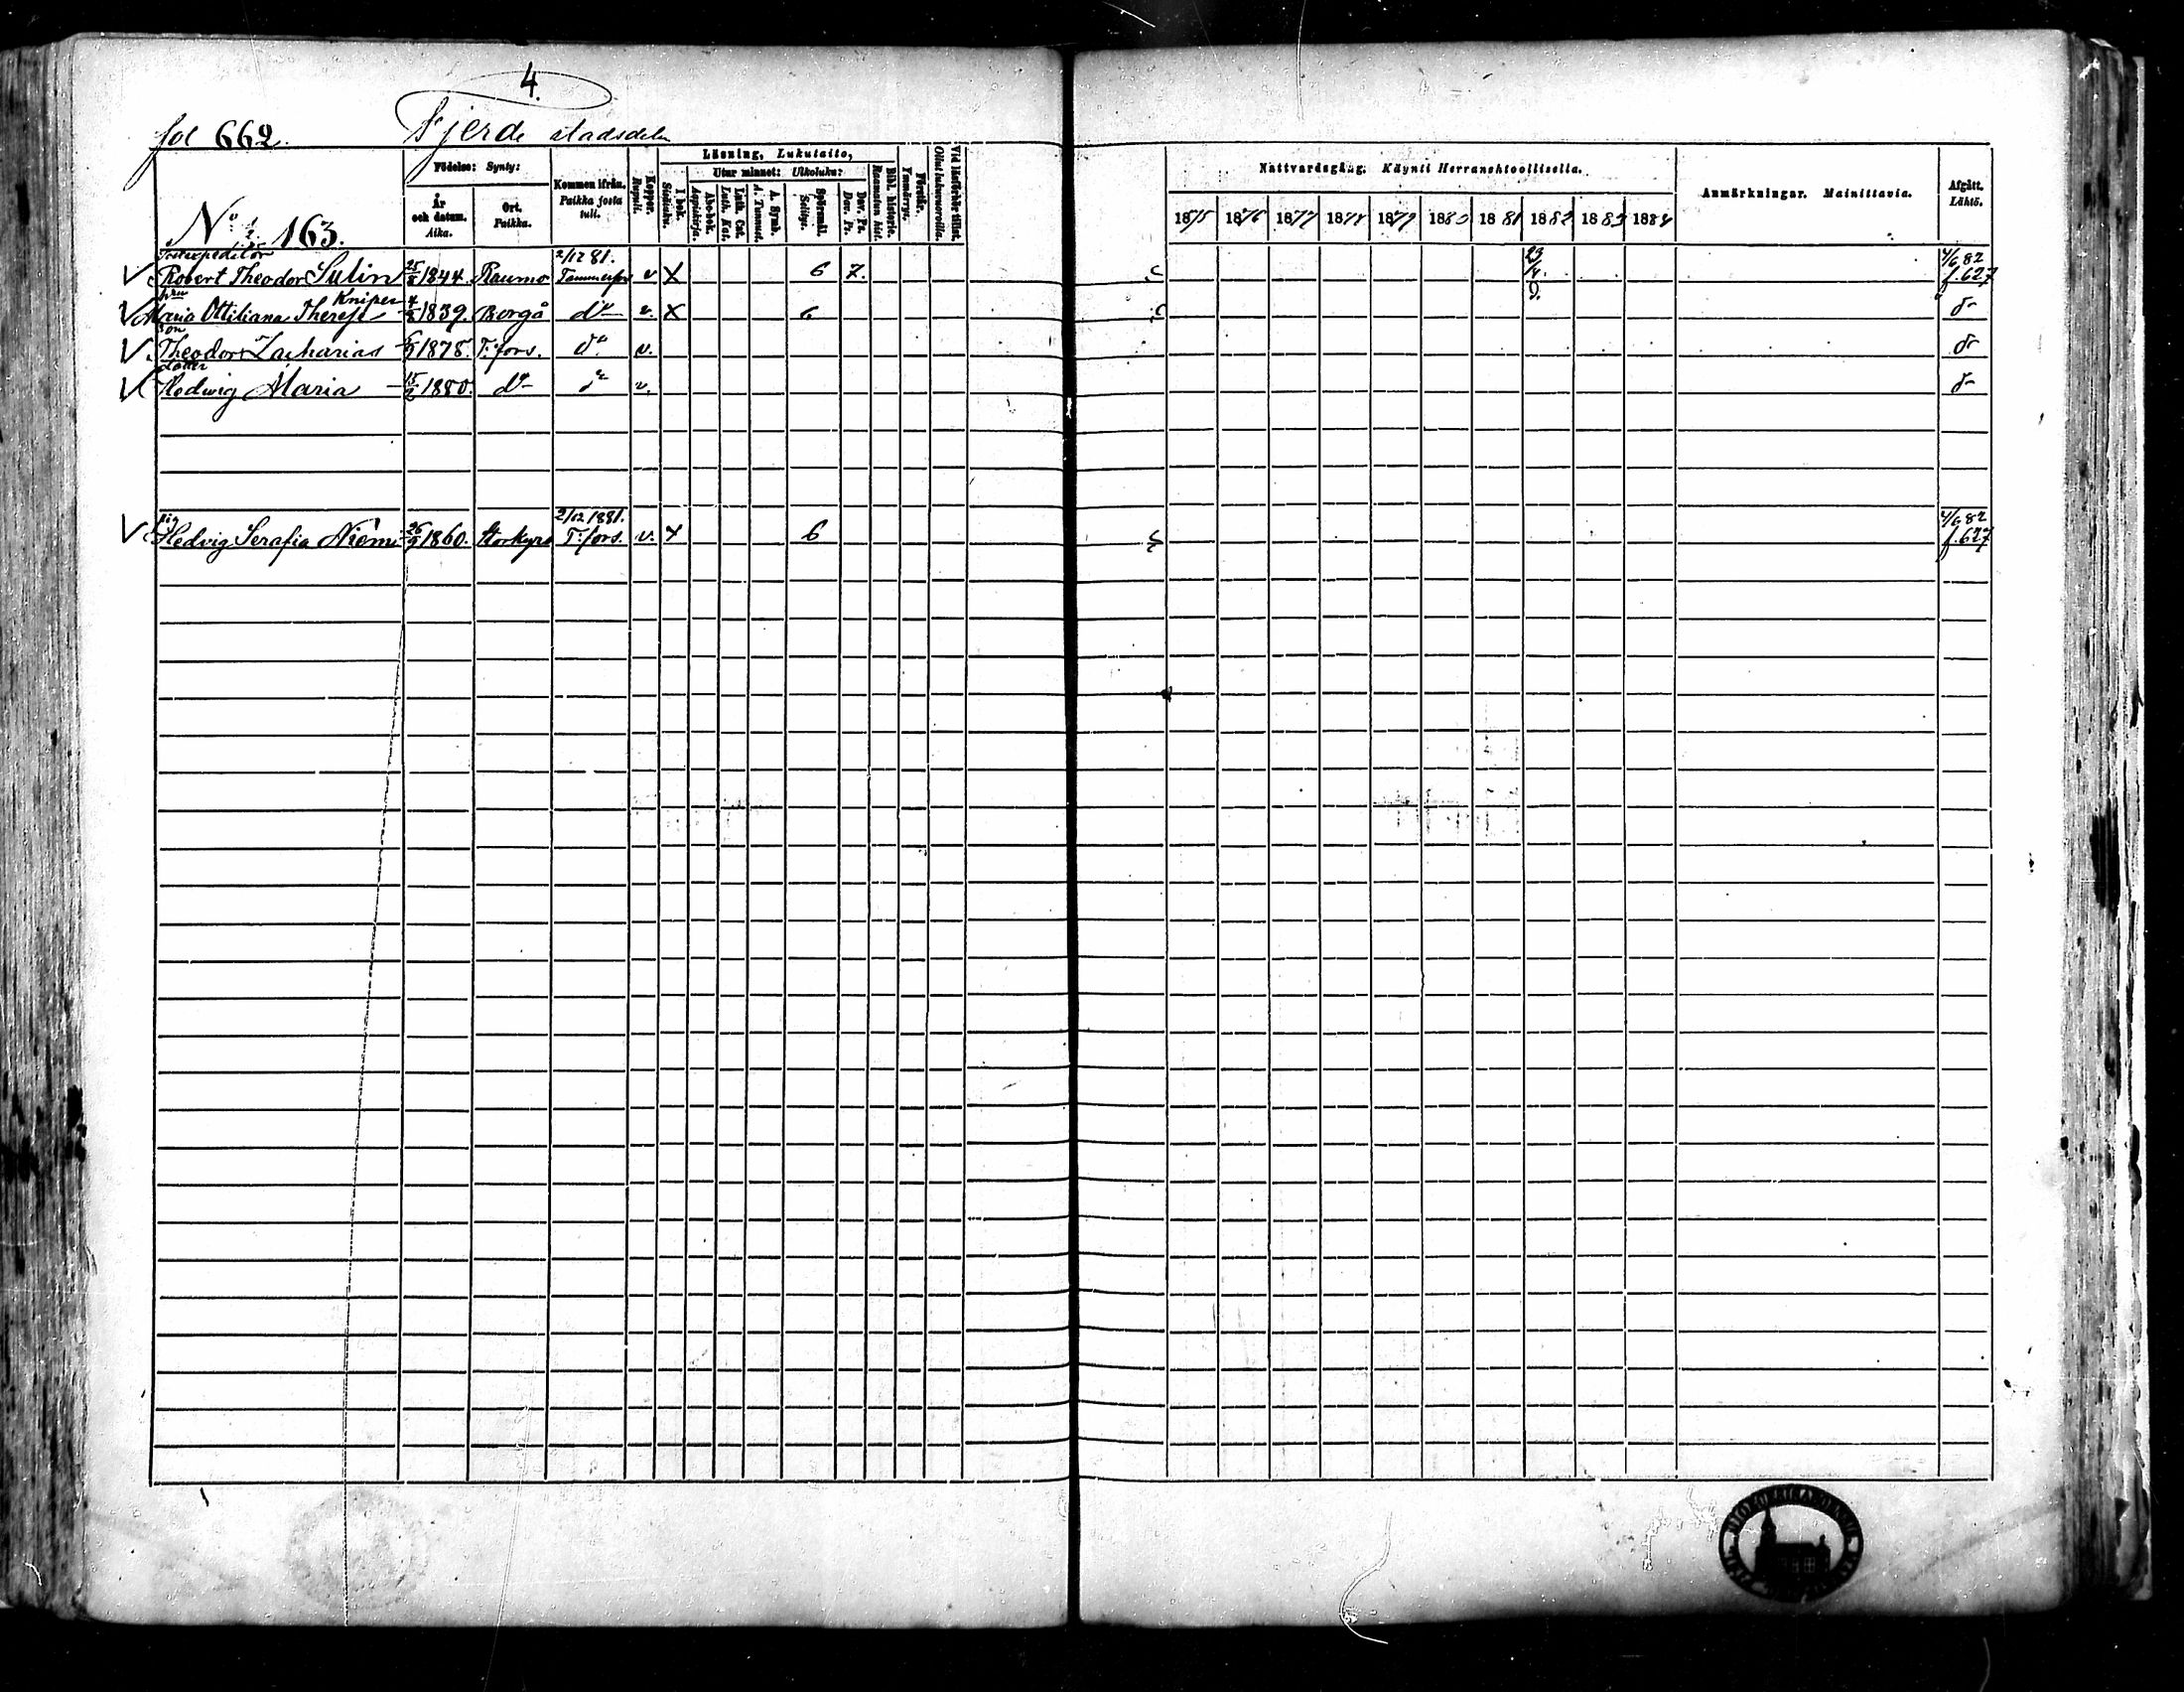 4.
fol 662. Fjerde stadsdelen
Födelse: Synty:
År och datum. Aika.
Ort. Paikka.
Kommen ifrån. Paikka josta tuli.
Koppor. Rupuli.
Läsning, Lukutaito,
I bok. Sisäluku.
Utur minnet: Ulkoluku:
Abc-bok. Aapiskirja.
Luth. Cat. Luth. Kat.
A. Symb. A. Tunnust.
Spörsmål. Selitys.
Dav. Ps. Dav. Ps.
Bibl. historie. Raamatun hist.
Förstår. Ymmärrys.
Vid läsförhör tillst.
Nattvardsgång. Käynti Herranehtoollisella.
1875 1876 1877 1878 1879 1880 1881 1882 1883 1884
Anmärkningar. Mainittavia.
Afgått. Lähtö.
No 163.
Postexpeditör 2/12 81. 23 4/6 82
Robert Theodor Sulin 1844. Raumo Tammerfors v X 6 7. /4. f. 627
Kniper
Maria Ottiliana Theresi 1839. Borgå do v. X 6 do
Son
Theodor Zacharias 1878. T:fors. do v. do
dotter
Hedwig Maria 15/2 1880. do do v. do
pig 2/12 1881. 4/6 82
Hedvig Serafia Niemi 26/9 1860. Storkyro T:fors. v. X 6 f. 627